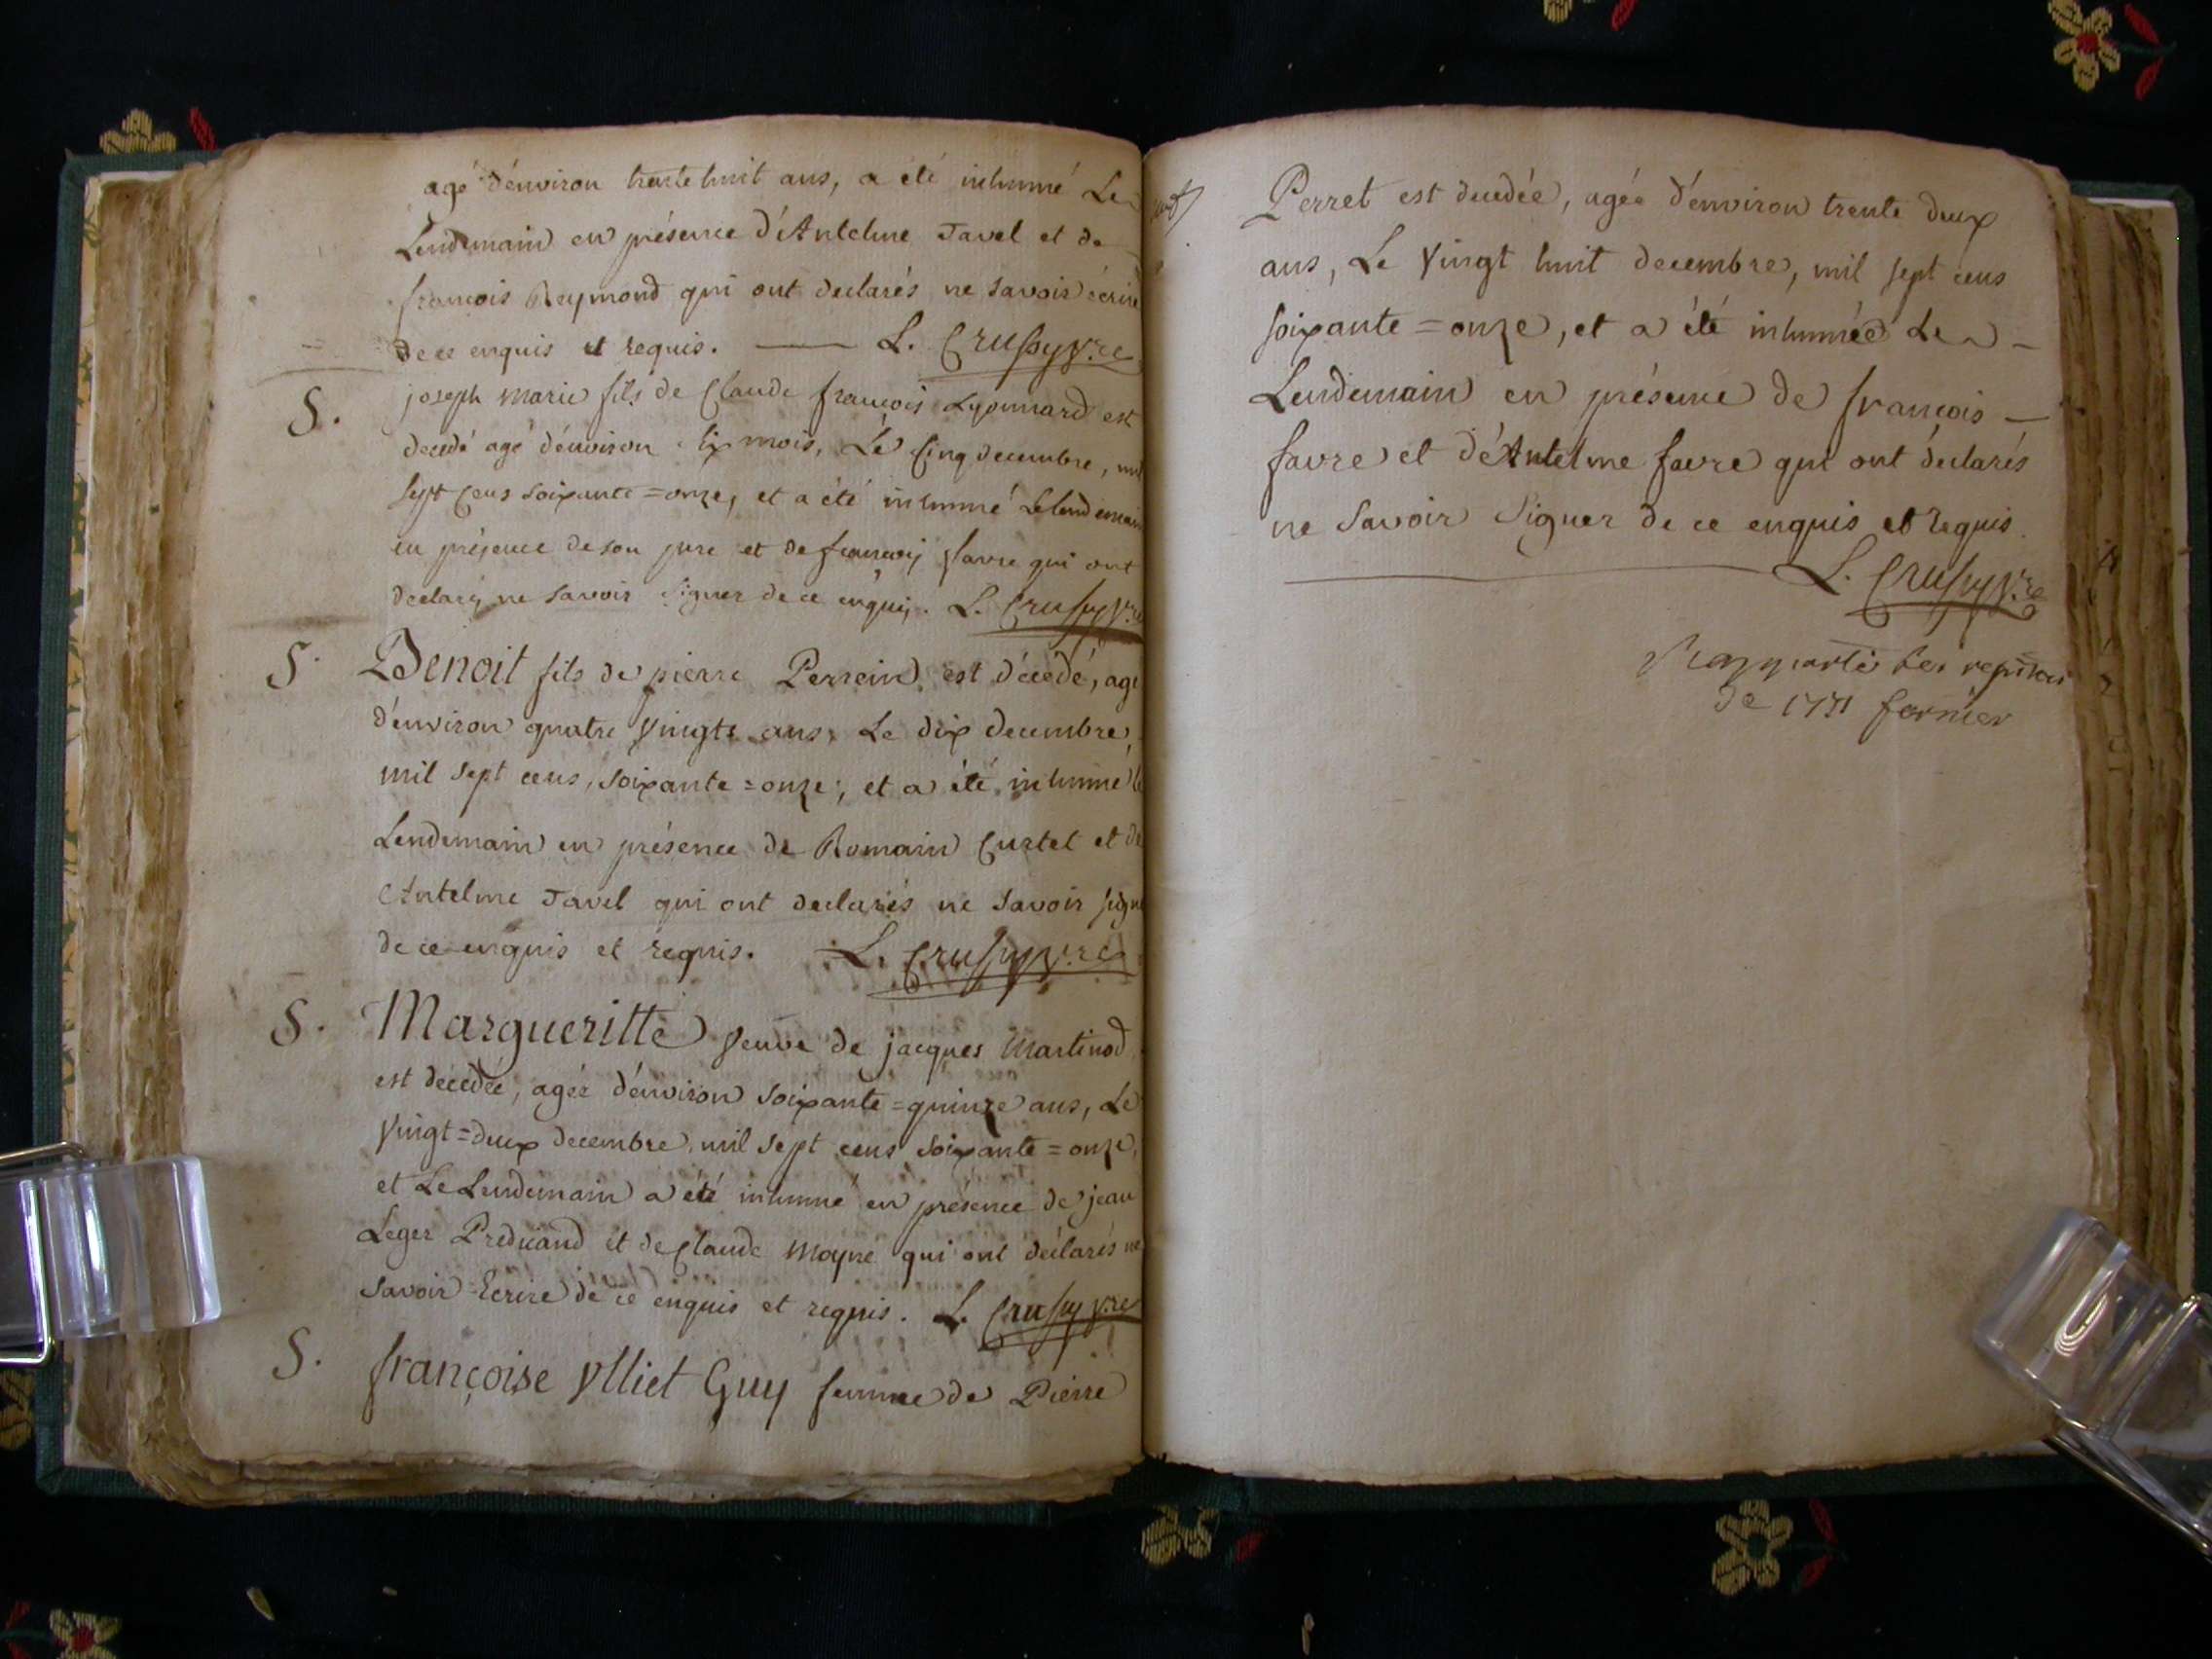 agé d'environ trente huit ans, a été inhumé Le
Lendemain en présence d'Antelme Javel et de
françois Reymond qui ont declarés ne savoir écrire
de ce enquis et requis. L. Crussy v.re
S. joseph marie fils de Claude françois Lyonnard est
decedé agé d'environ six mois, Le Cinq decembre, mil
sept cens soixante=onze, et a été inhumé Le lendemain
en présence de son pere et de françois favre qui ont
declarés ne savoir signer de ce enquis. L. Crussy v.re
S. Benoit fils de pierre Perrein est décédé, agé
d'environ quatre vingts ans, Le dix decembre,
mil sept cens, soixante=onze, et a été inhumé le
Lendemain en présence de Romain Curtet et de
Antelme Javel qui ont declarés ne savoir signer
de ce enquis et requis. L. Crussy v.re
S. Margueritte veuve de jacques Martinod
est decedée, agée d'environ soixante=quinze ans, Le
vingt=deux decembre, mil sept cens soixante=onze,
et Le Lendemain a été inhumé en presence de jean
Leger Preduand et de Claude moyne qui ont déclarés ne
savoir Ecrire de ce enquis et requis. L. Crussy v.re
S. françoise ylliet Guy femme de Pierre
Perret est decedée, agée d'environ trente deux
ans, Le vingt huit decembre, mil sept cens
soixante=onze, et a été inhumée Le
Lendemain en présence de françois
favre et d'Antelme favre qui ont déclarés
ne savoir signer de ce enquis et requis.
L. Crussy v.re
Rapporté les registres
de 1771 fornier